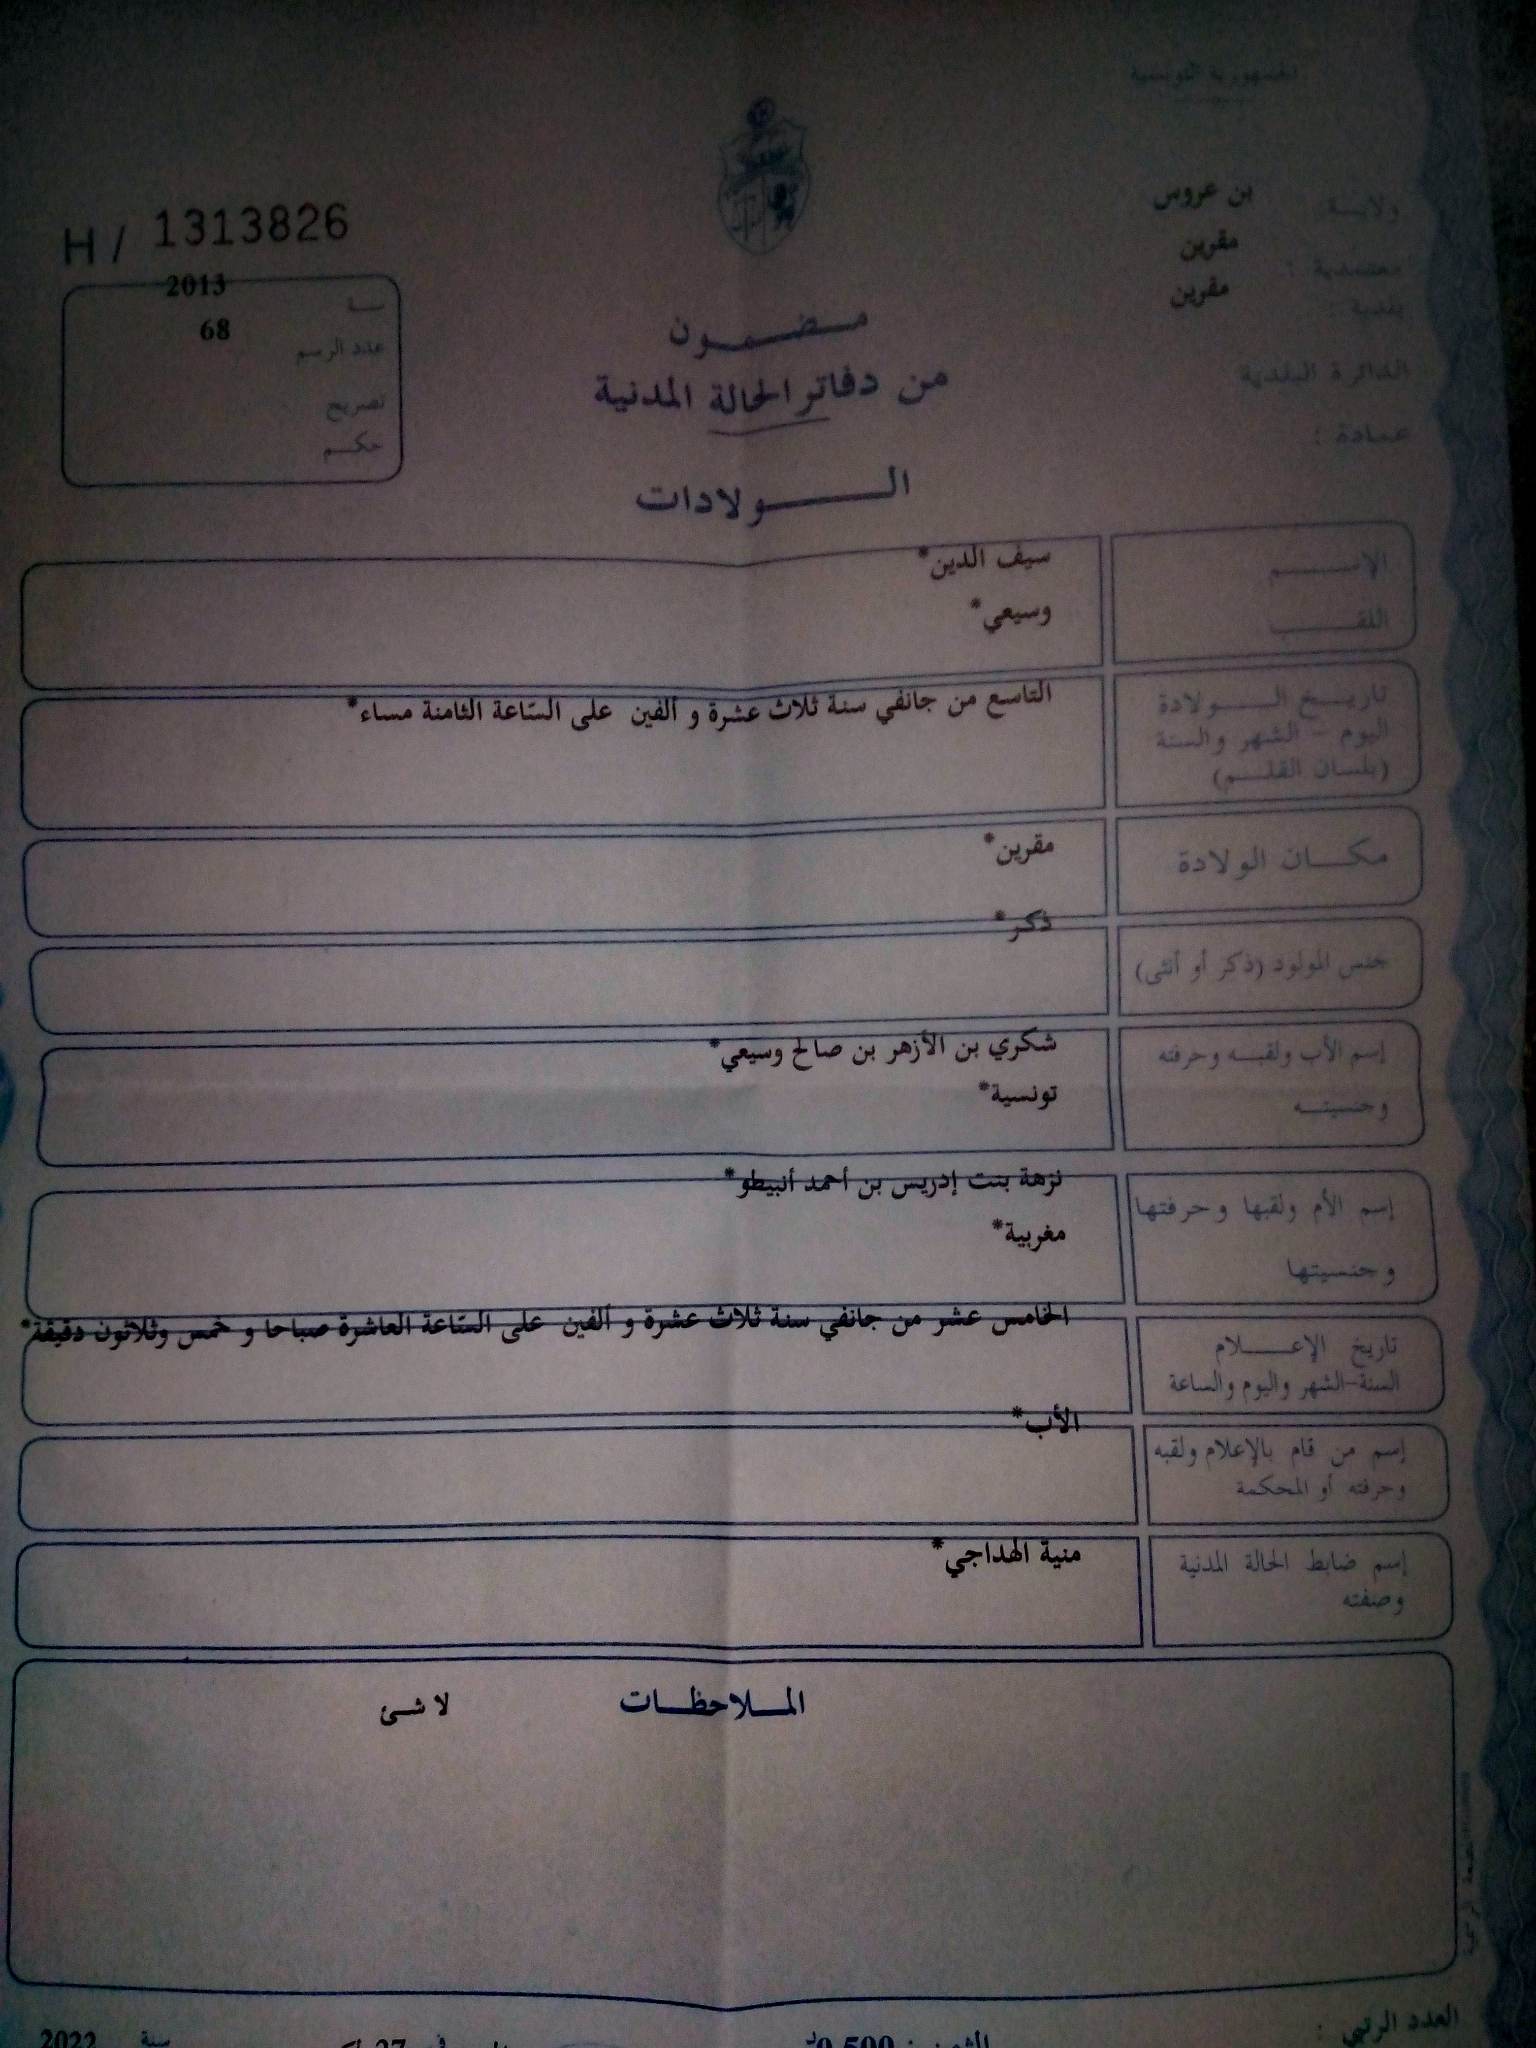 الجمهورية التونسية
ولايـة بن عروس
معتمدية : مقرين
بلدية : مقرين
الدائرة البلدية
عمادة :
H / 1313826
2013
68
عدد الرسم
تصريح
حكـم
مـضـمـون
من دفاتر الحالة المدنية
الـولادات
الإسـم سيف الدين*
اللقـب وسيعي*
تاريـخ الـولادة التاسع من جانفي سنة ثلاث عشرة و ألفين على السّاعة الثامنة مساء*
اليوم - الشهر والسنة
(بلسان القلـم)
مكـان الولادة مقرين*
جنس المولود (ذكر أو أنثى) ذكر*
إسم الأب ولقبـه وحرفته شكري بن الأزهر بن صالح وسيعي*
وجنسيتـه تونسية*
إسم الأم ولقبها وحرفتها نزهة بنت إدريس بن أحمد أنبيطو*
وجنسيتها مغربية*
تاريخ الإعـلام الخامس عشر من جانفي سنة ثلاث عشرة و ألفين على السّاعة العاشرة صباحا و خمس وثلاثون دقيقة*
السنة-الشهر واليوم والساعة
إسم من قام بالإعلام ولقبه الأب*
وحرفته أو المحكمة
إسم ضابط الحالة المدنية منية الهداجي*
وصفته
المـلاحظـات لا شـئ
العدد الرتبي :
0,500
27
سنة 2022